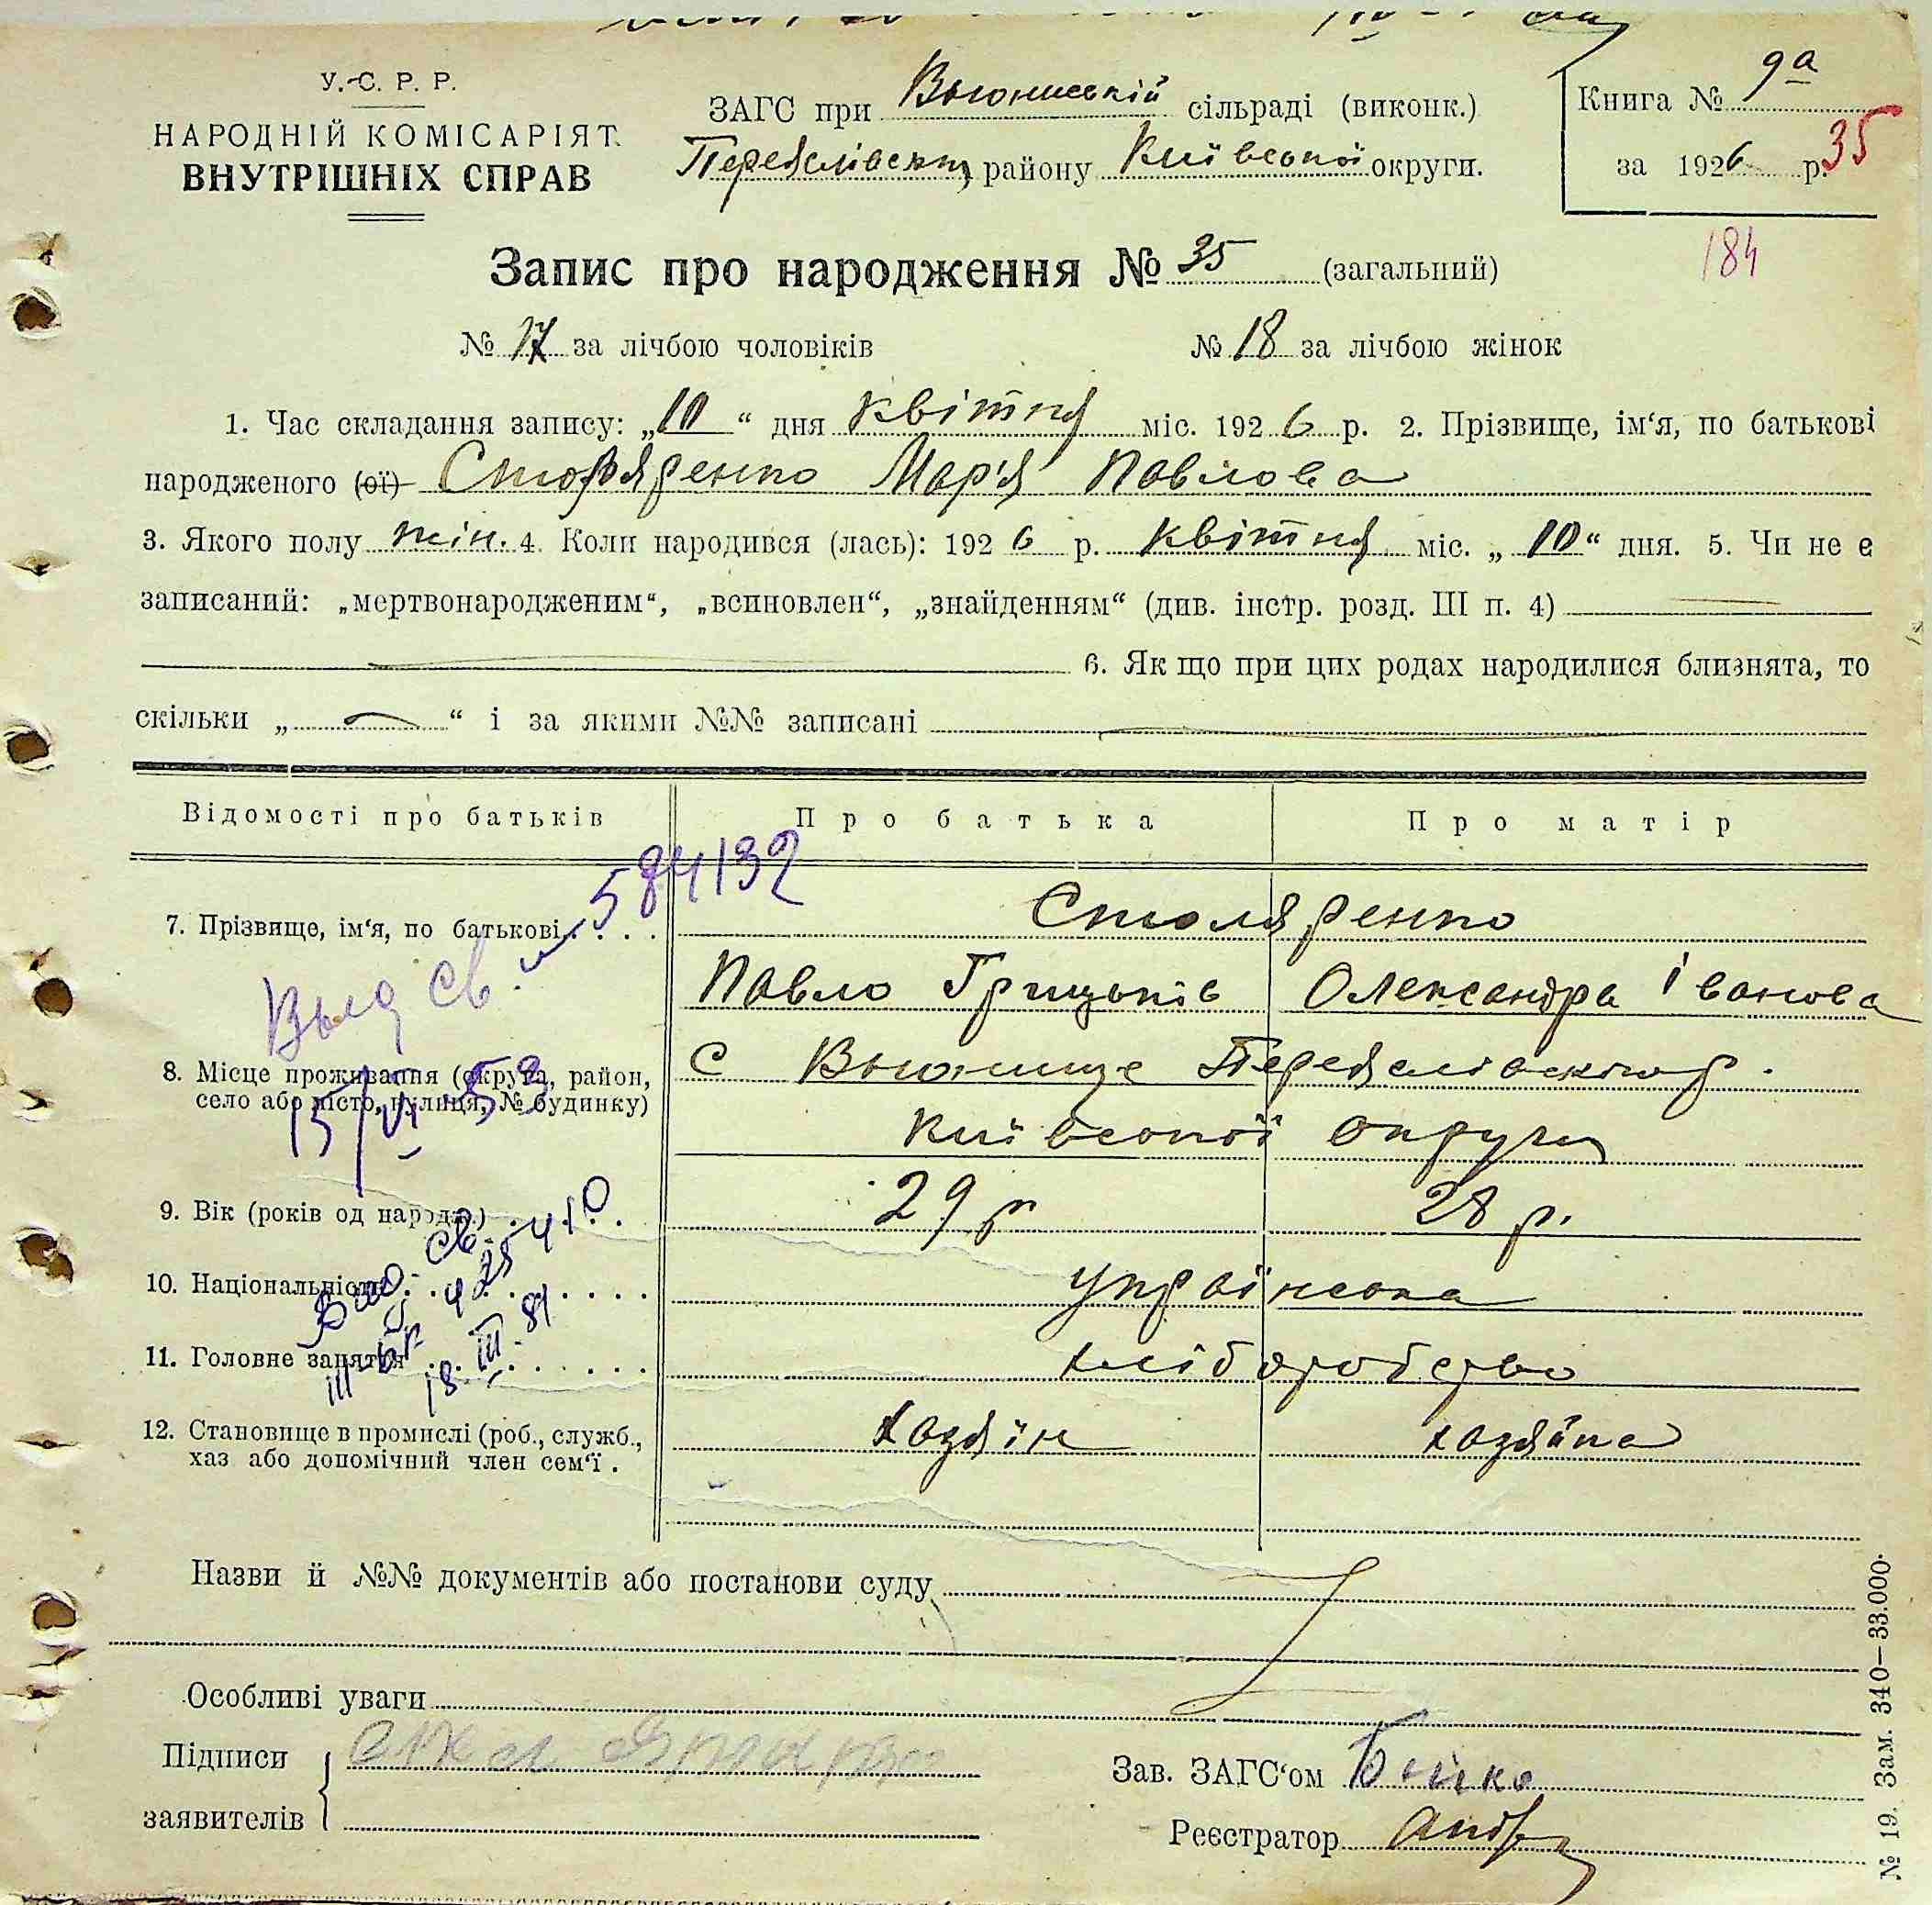 У.С.Р.Р.
НАРОДНІЙ КОМІСАРІЯТ
ВНУТРІШНІХ СПРАВ
ЗАГС при сільраді (виконк.)
району Київської округи.
Книга № 9а
за 1926 р. 35
184
Запис про народження № 35 (загальний)
№ 17 за лічбою чоловіків № 18 за лічбою жінок
1. Час складання запису: „10“ дня квітня міс. 1926 р. 2. Прізвище, ім‘я, по батькові
народженого (ої) Столяренко Мар'я Павлова
3. Якого полу жін. 4. Коли народився (лась): 1926 р. квітня міс. „10“ дня. 5. Чи не є
записаний: „мертвонародженим“, „всиновлен“, „знайденням“ (див. інстр. розд. III п. 4)
6. Як що при цих родах народилися близнята, то
скільки „ “ і за якими №№ записані
Відомості про батьків Про батька Про матір
584132
7. Прізвище, ім‘я, по батькові Столяренко
Павло Грицьків Олександра Іванова
Выд св.
8. Місце проживання (округа, район, село або місто, вулиця, № будинку) с Переяславськ р.
Київської округи
15/VI 53
9. Вік (років од народж.) 29 р 28 р.
10. Національність Українська
11. Головне заняття хліборобство
18.III.81
12. Становище в промислі (роб., служб., хазяїн хазяйка
хаз або допомічний член сем‘ї.
Назви й №№ документів або постанови суду
Особливі уваги
Підписи
заявителів
Зав. ЗАГС‘ом Бойко
Реєстратор
№ 19. Зам. 340—33.000.